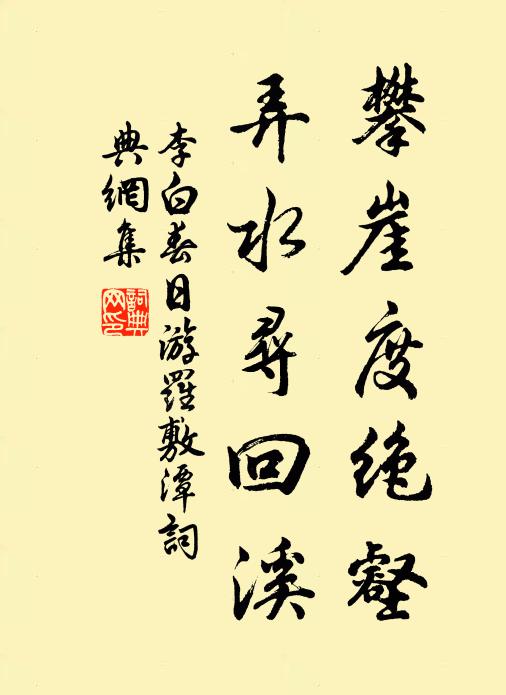 攀崖度絶壑
弄水尋回溪
李白春日游羅敷潭詞
典網集
詞典
网印